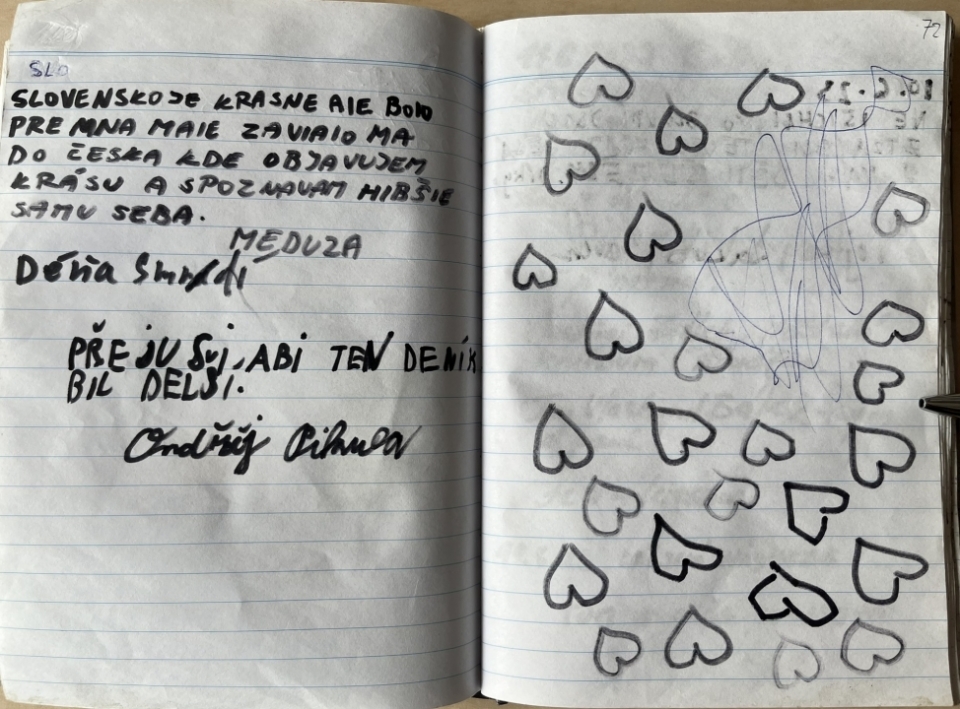 SLO
SLOVENSKO JE KRASNE ALE BOLO
PRE MNA MALE ZAVIALO MA
DO ČESKA KDE OBJAVUJEM
KRÁSU A SPOZNAVAM HLBŠIE
SAMU SEBA.
MEDUZA
PŘEJU SVJ, ABI TEN DENÍK
BIL DELŠÍ.
Ondřěj
72